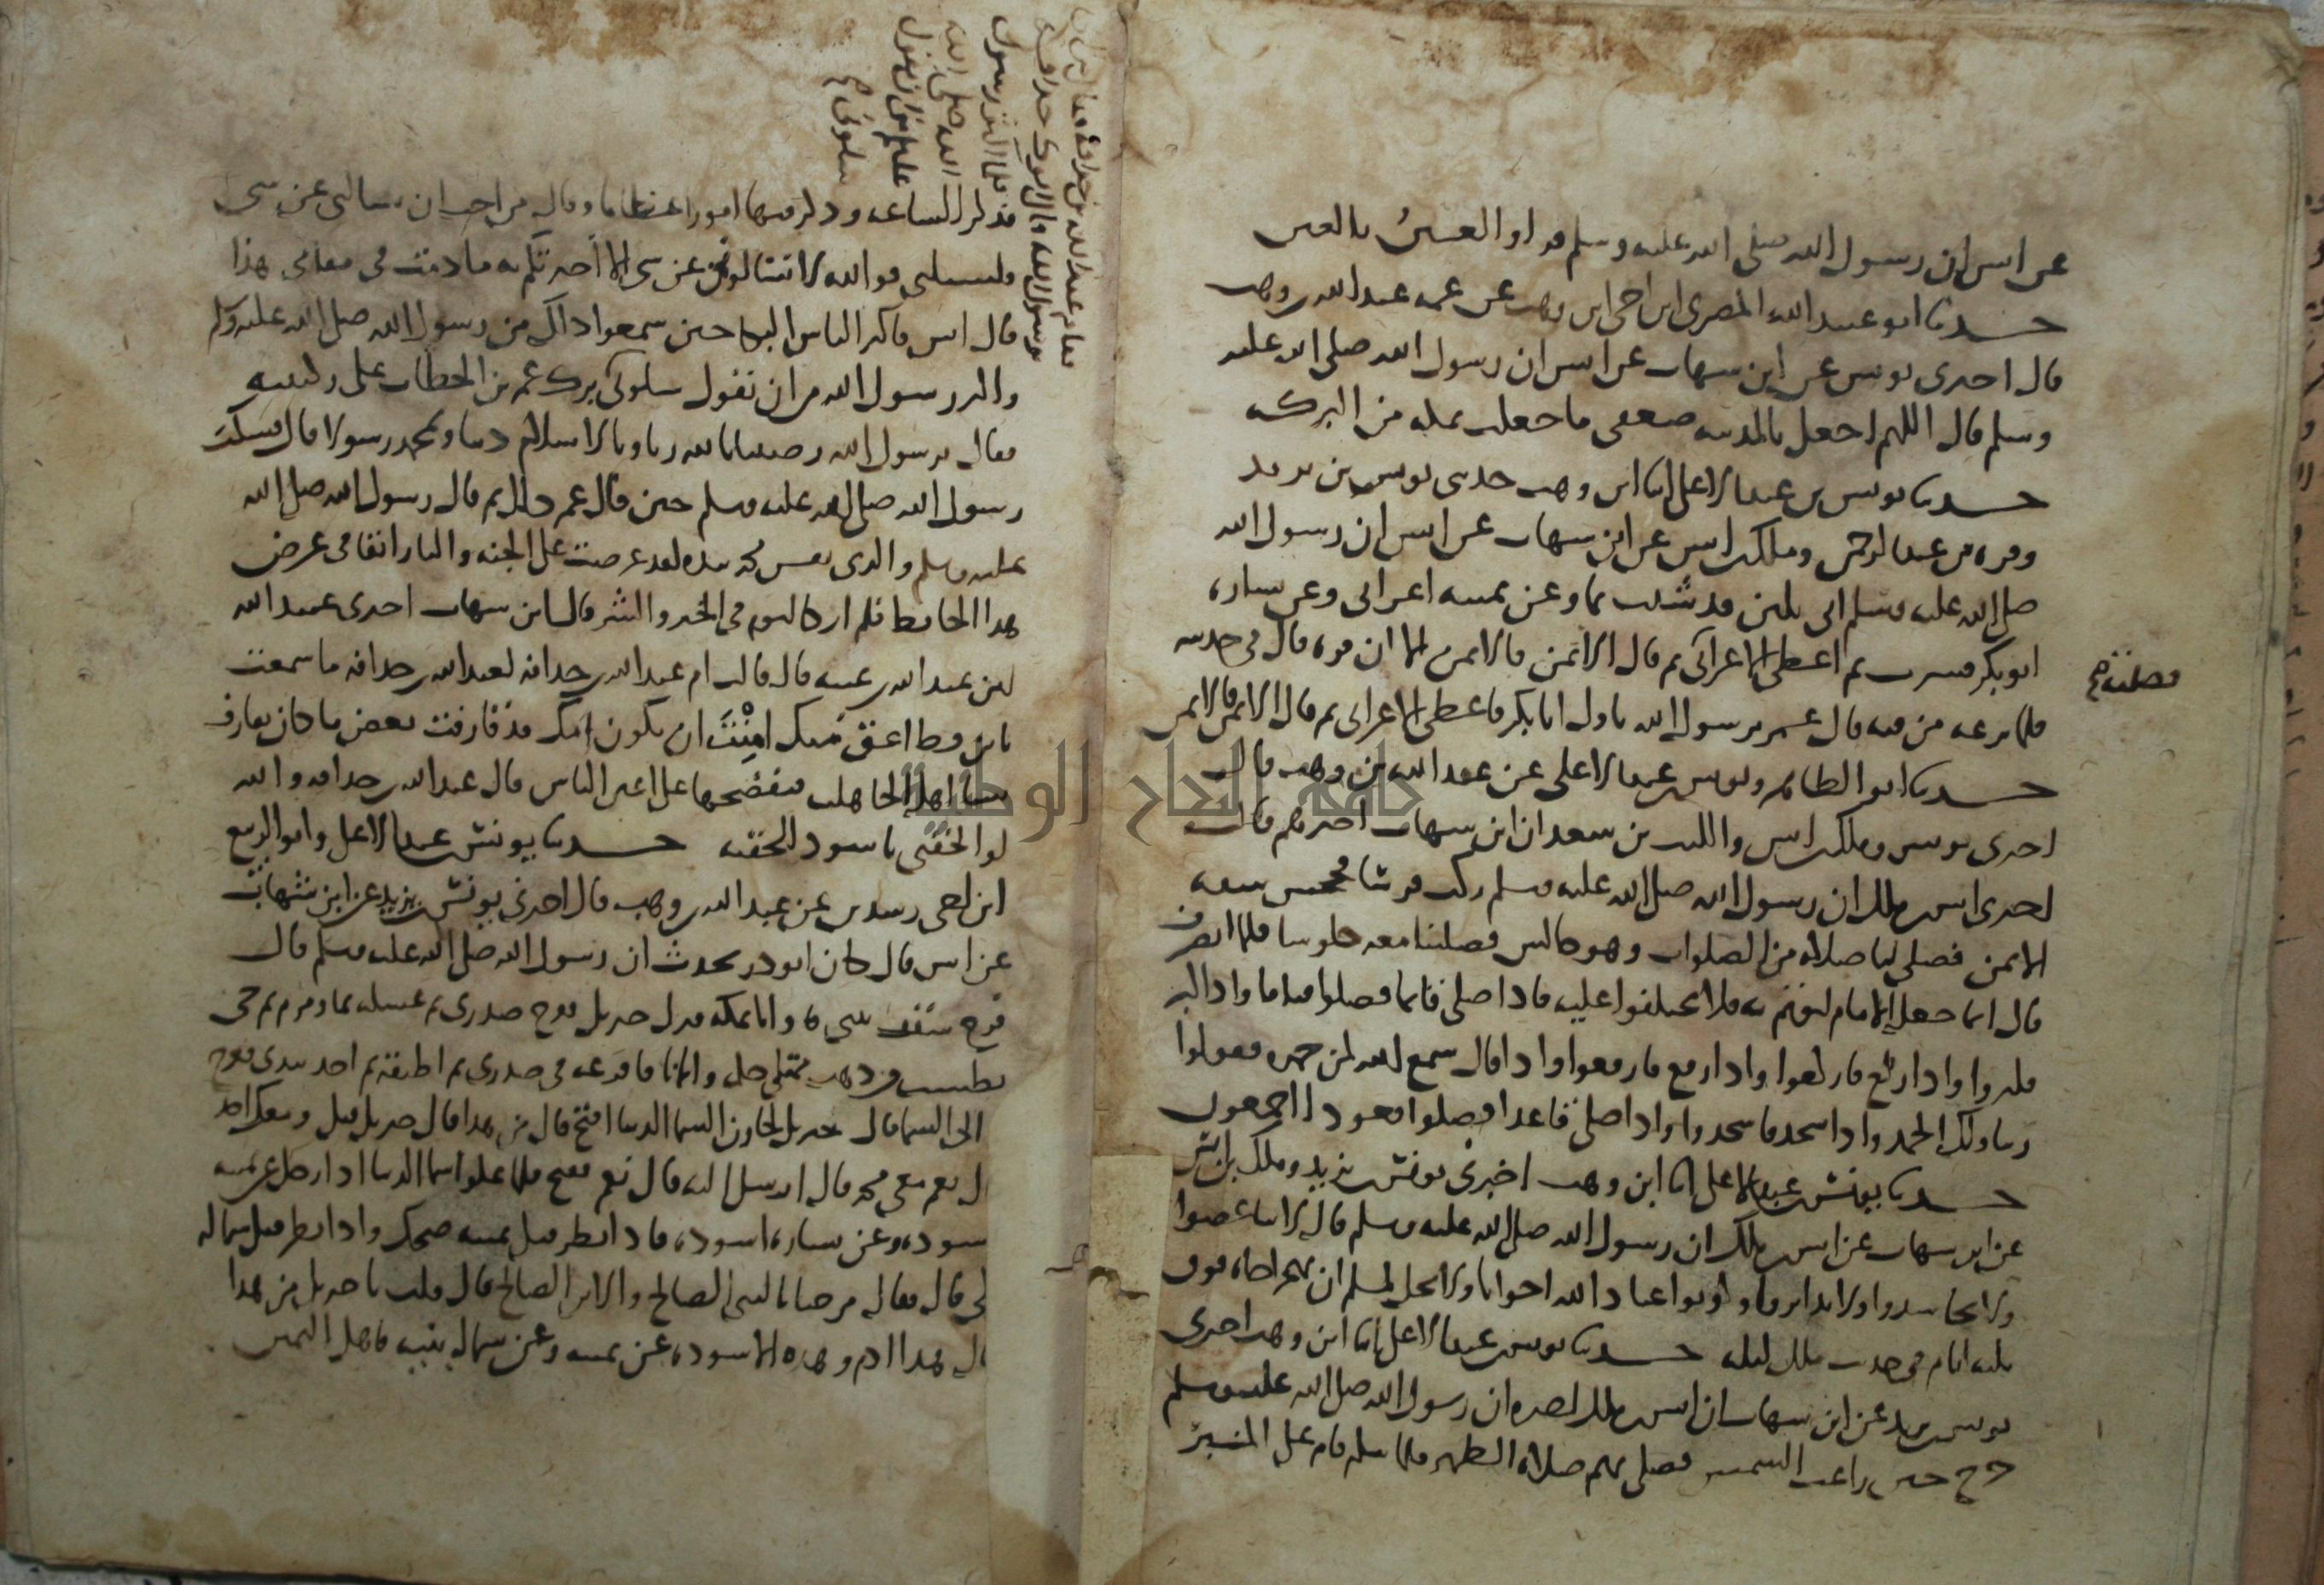 عن انس ان رسول الله صلى الله عليه وسلم قرا والعين بالعين
حدثنا ابو عبيد الله المصري ابن اخي ابن وهب عن عمه عبد الله بن وهب
قال اخبرني يونس عن ابن شهاب عن انس ان رسول الله صلى الله عليه
وسلم قال اللهم اجعل بالمدينه ضعفي ما جعلت بمكه من البركه
حدثنا يونس بن عبد الاعلى انا ابن وهب حدثني يونس بن يزيد
وقره بن عبد الرحمن وملك بن انس عن ابن شهاب عن انس ان رسول الله
صلى الله عليه وسلم اتي بلبن قد شيب بما وعن يمينه اعرابي وعن يساره
ابو بكر فشرب ثم اعطى الاعرابي ثم قال الايمن فالايمن الا ان قره قال في حديثه
فلما نزعه من فيه قال عمر يرسول الله ناول ابا بكر فاعطى الاعرابي ثم قال الايمن فالايمن
حدثنا ابو الطاهر ويونس بن عبد الاعلى عن عبد الله بن وهب قال
اخبرني يونس وملك بن انس والليث بن سعد ان ابن شهاب اخبرهم قال
اخبرني انس بن ملك ان رسول الله صلى الله عليه وسلم ركب فرسا فجحش شقه
الايمن فصلى لنا صلاه من الصلوات وهو جالس فصلينا معه جلوسا فلما انصرف
قال انما جعل الامام ليوتم به فلا تختلفوا عليه فاذا صلى قائما فصلوا قياما واذا كبر
فكبروا واذا ركع فاركعوا واذا رفع فارفعوا واذا قال سمع الله لمن حمده فقولوا
ربنا ولك الحمد واذا سجد فاسجدوا واذا صلى قاعدا فصلوا قعودا اجمعون
حدثنا يونس بن عبد الاعلى انا ابن وهب اخبرني يونس بن يزيد وملك بن انس
عن ابن شهاب عن انس بن ملك ان رسول الله صلى الله عليه وسلم قال لا تباغضوا
ولا تحاسدوا ولا تدابروا وكونوا عباد الله اخوانا ولا يحل لمسلم ان يهجر اخاه فوق
ثلثه ايام في حديث ملك ليله حدثنا يونس بن عبد الاعلى انا ابن وهب اخبرني
يونس بن يزيد عن ابن شهاب ان انس بن ملك اخبره ان رسول الله صلى الله عليه وسلم
خرج حين زاغت الشمس فصلى بهم صلاه الظهر فلما سلم قام على المنبر
فذكر الساعه وذكر فيها امورا عظاما وقال من احب ان يسالني عن شي
فليسلني فوالله لا تسالونني عن شي الا اخبرتكم به ما دمت في مقامي هذا
قال انس فاكثر الناس البكا حين سمعوا ذلك من رسول الله صلى الله عليه وسلم
واكثر رسول الله من ان يقول سلوني برك عمر بن الخطاب على ركبتيه
فقال يرسول الله رضينا بالله ربا وبالاسلام دينا وبمحمد رسولا قال فسكت
رسول الله صلى الله عليه وسلم حين قال عمر ذلك ثم قال رسول الله صلى الله
عليه وسلم والذي نفس محمد بيده لقد عرضت علي الجنه والنار انفا في عرض
هذا الحائط فلم ار كاليوم في الخير والشر قال ابن شهاب اخبرني عبيد الله
ابن عبد الله بن عتبه قال قالت ام عبد الله بن حذافه لعبد الله بن حذافه ما سمعت
بابن قط اعق منك امنت ان تكون امك قد قارفت بعض ما كان يقارف
نسا اهل الجاهليه فتفضحها على اعين الناس قال عبد الله بن حذافه والله
لو الحقني باسود للحقته حدثنا يونس بن عبد الاعلى وابو الربيع
ابن اخي رشدين عن عبد الله بن وهب قال اخبرني يونس بن يزيد عن ابن شهاب
عن انس قال كان ابو ذر يحدث ان رسول الله صلى الله عليه وسلم قال
فرج سقف بيتي وانا بمكه فنزل جبريل ففرج صدري ثم غسله بما زمزم ثم جى
بطست من ذهب ممتلى حكمه وايمانا فافرغه في صدري ثم اطبقه ثم اخذ بيدي فعرج
الى السما قال جبريل لخازن السما الدنيا افتح قال من هذا قال جبريل قيل ومعك احد
قال نعم معي محمد قال ارسل اليه قال نعم ففتح فلما علوا السما الدنيا اذا رجل عن يمينه
اسوده وعن يساره اسوده فاذا نظر قبل يمينه ضحك واذا نظر قبل شماله
بكى قال فقال مرحبا بالنبي الصالح والابن الصالح قال قلت يا جبريل من هذا
قال هذا ادم وهذه الاسوده عن يمينه وعن شماله بنيه فاهل اليمين
فقام عبد الله بن حذافه فقال من ابي
يرسول الله قال ابوك حذافه
فلما اكثر رسول
الله صلى الله
عليه من ان يقول
سلوني
جامعة النجاح الوطنية